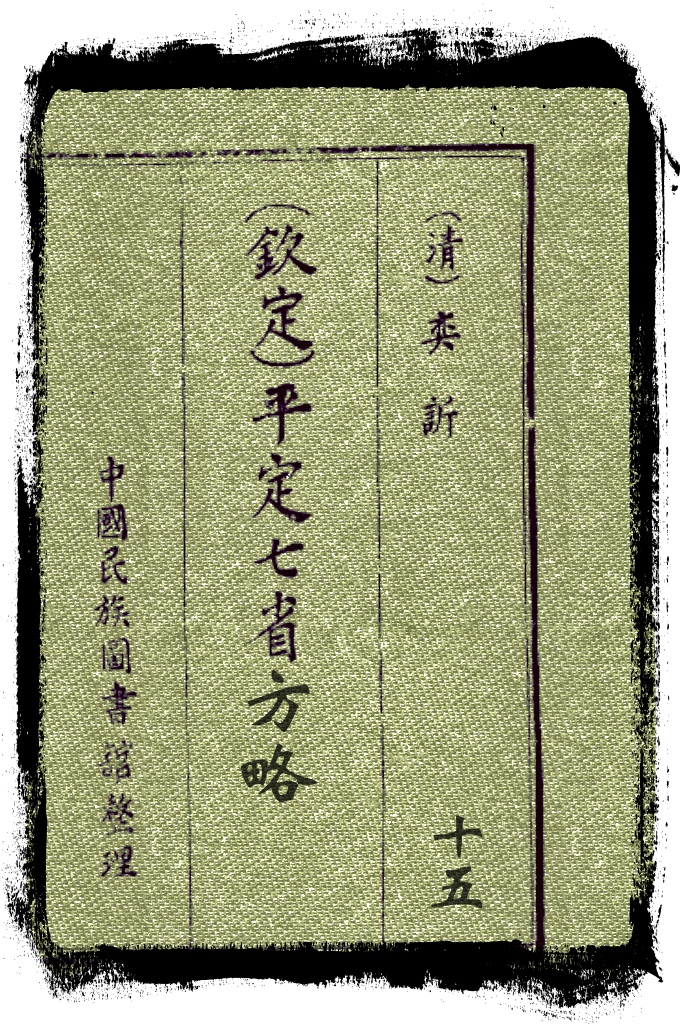 (清)奕訢
十五
(欽定)平定七省方略
中國民族圖書館整理